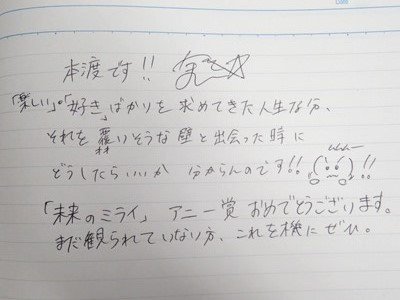 本渡です!!
「楽しい」や「好き」ばかりを求めてきた人生な分、
それを覆いそうな壁と出会った時に
どうしたらいいか 分からんのです!! !!
「未来のミライ」 アニー賞 おめでとうございます。
まだ観られていない方、これを機にぜひ。